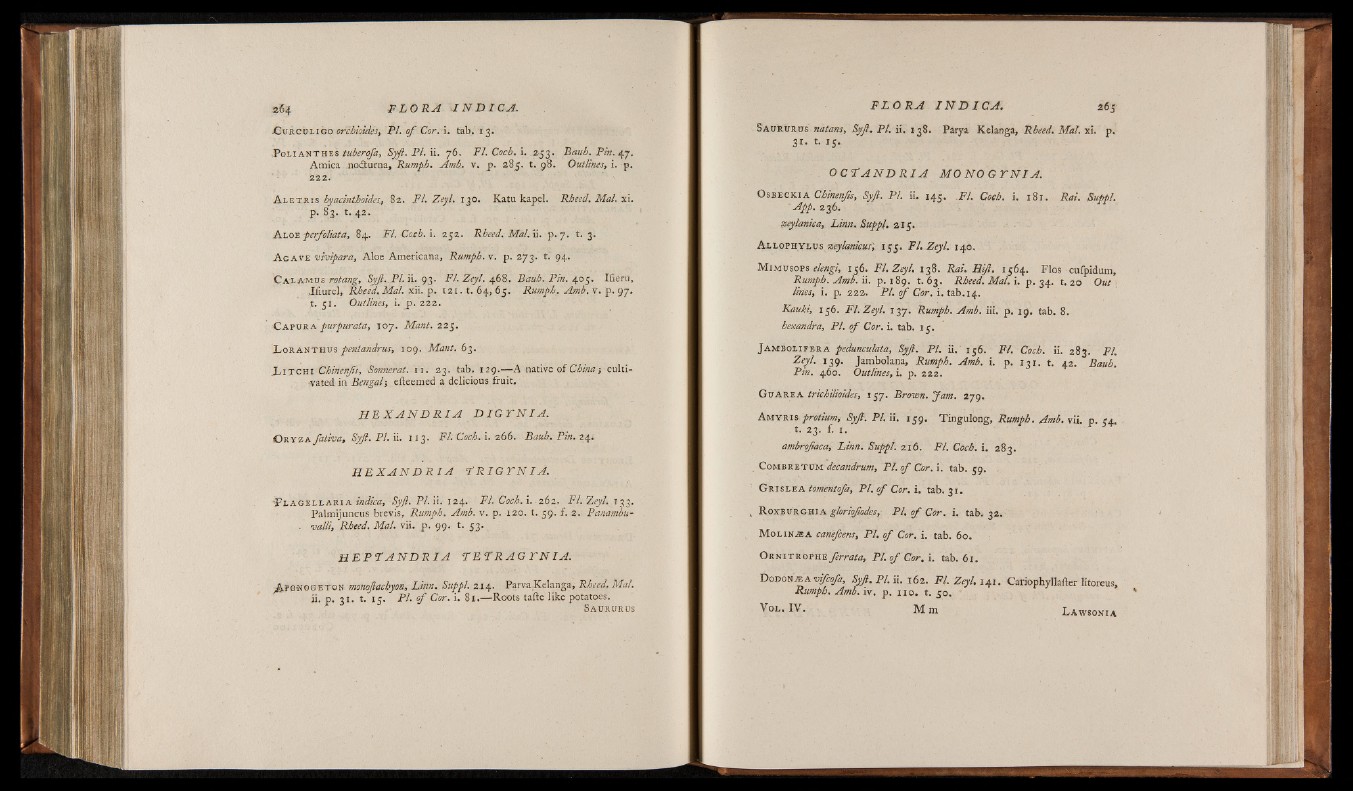 264 FLORA INDICA.
CURCULIGO orchioides, Pl. of Cor. i. tab. 13.
POLIANTHES tuberoſa, Syſt. Pl. ii. 76. Fl. Coch. i. 253. Bauh. Pin. 47.
Amica nocturna, Rumph. Amb. v. p. 285. t. 98. Outlines, i. p.
222.
ALETRIS hyacinthoides, 82. Fl. Zeyl. 130. Katu kapel. Rheed. Mal. xi.
p. 83. t. 42.
ALOE perfoliata, 84. Fl. Coch. i. 252. Rheed. Mal. ii. p. 7. t. 3.
AGAVE vivipara, Aloe Americana, Rumph. v. p. 273. t. 94.
CALAMUS rotang, Syſt. Pl. ii. 93. Fl. Zeyl. 468. Bauh. Pin. 405. Iſieru,
Iſiurel, Rheed. Mal. xii. p. 121. t. 64, 65. Rumph. Amb. v. p. 97.
t. 51. Outlines, i. p. 222.
CAPURA purpurata, 107. Mant. 225.
LORANTHUS pentandrus, 109. Mant. 63.
LITCHI Chinenſis, Sonnerat. 11. 23. tab. 129.—A native of China; culti-
vated in Bengal; eſteemed a delicious fruit.
HEXANDRIA DIGYNIA.
ORYZA ſativa, Syſt. Pl. ii. 113. Fl. Coch. i. 266. Bauh. Pin. 24.
HEXANDRIA TRIGYNIA.
FLAGELLARIA indica, Syſt. Pl. ii. 124. Fl. Coch. i. 262. Fl. Zeyl. 133.
Palmijuncus brevis, Rumph. Amb. v. p. 120. t. 59. f. 2. Panambu-
valli, Rheed. Mal. vii. p. 99. t. 53.
HEPTANDRIA TETRAGYNIA.
APONOGETON monoſtachyon, Linn. Suppl. 214. Parva Kelanga, Rheed. Mal.
ii. p. 31. t. 15. Pl. of Cor. i. 81.—Roots taſte like potatoes.
SAURURUS
FLORA INDICA. 265
SAURURUS natans, Syſt. Pl. ii. 138. Parya Kelanga, Rheed. Mal. xi. p.
31. t. 15.
OCTANDRIA MONOGYNIA.
OSBECKIA Chinenſis, Syſt. Pl. ii. 145. Fl. Coch. i. 181. Rai. Suppl.
App. 236.
zeylanica, Linn. Suppl. 215.
ALLOPHYLUS zeylanicus, 155. Fl. Zeyl. 140.
MIMUSOPS elengi, 156. Fl. Zeyl. 138. Rai. Hiſt. 1564. Flos cuſpidum,
Rumph. Amb. ii. p. 189. t. 63. Rheed. Mal. i. p. 34. t. 20 Out
lines, i. p. 222. Pl. of Cor. i. tab. 14.
Kauki, 156. Fl. Zeyl. 137. Rumph. Amb. iii. p. 19. tab. 8.
hexandra, Pl. of Cor. i. tab. 15.
JAMBOLIFERA pedunculata, Syſt. Pl. ii. 156. Fl. Coch. ii. 283. Fl.
Zeyl. 139. Jambolana, Rumph. Amb. i. p. 131. t. 42. Bauh.
Pin. 460. Outlines, i. p. 222.
GUAREA trichilioides, 157. Brown. Jam. 279.
AMYRIS protium, Syſt. Pl. ii. 159. Tingulong, Rumph. Amb. vii. p. 54.
t. 23. f. 1.
ambroſiaca, Linn. Suppl. 216. Fl. Coch. i. 283.
COMBRETUM decandrum, Pl. of Cor. i. tab. 59.
GRISLEA tomentoſa, Pl. of Cor. i. tab. 31.
ROXBURGHIA glorioſiodes, Pl. of Cor. i. tab. 32.
MOLINÆA caneſcens, Pl. of Cor. i. tab. 60.
ORNITROPHE ſerrata, Pl. of Cor. i. tab. 61.
DODONÆA viſcoſa, Syſt. Pl. ii. 162. Fl. Zeyl. 141. Cariophyllaſter litoreus,
Rumph. Amb. iv. p. 110. t. 50.
VOL. IV. M m LAWSONIA